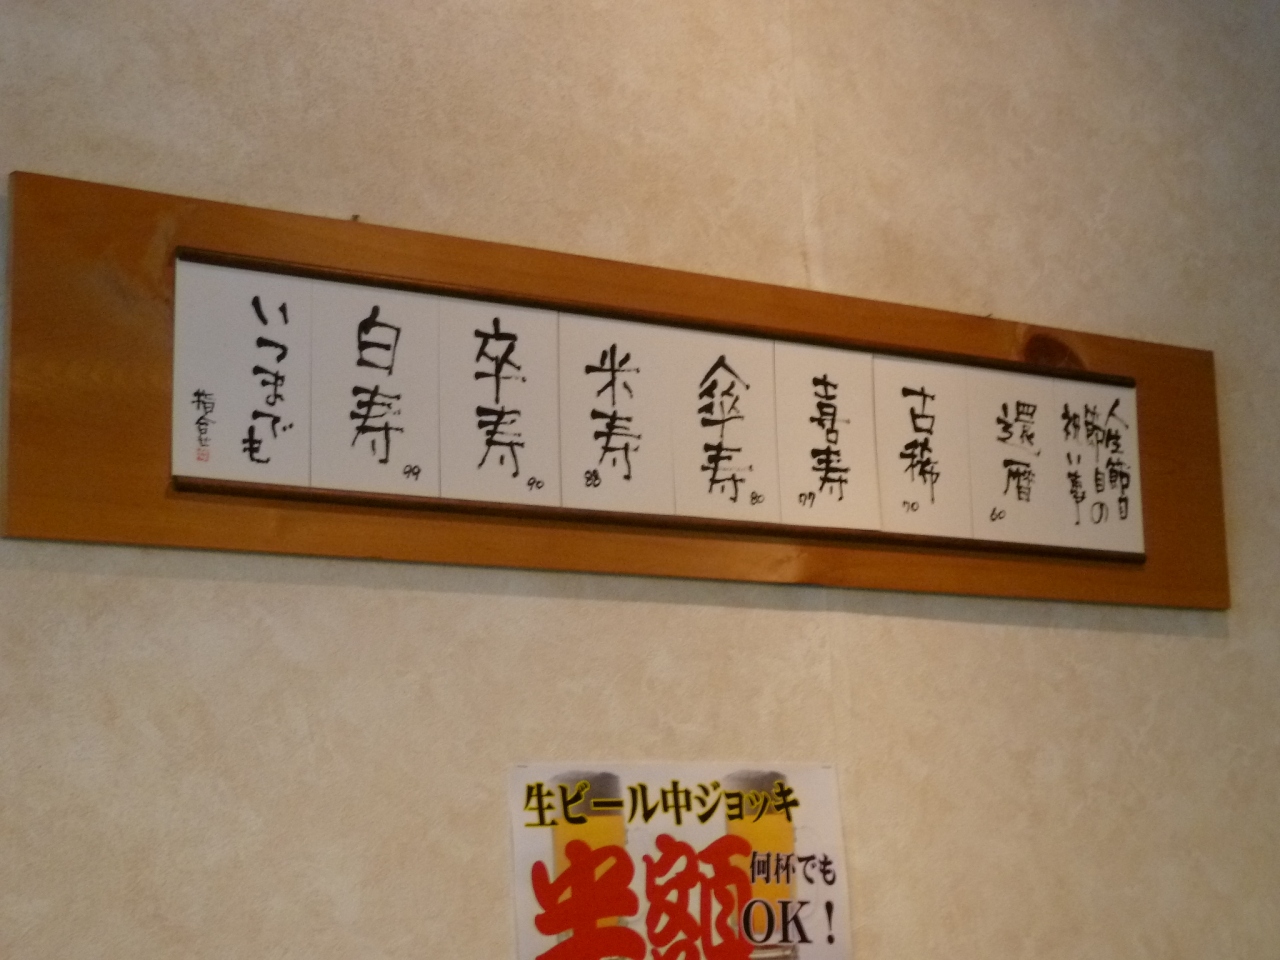 人生節目
節目の
祝い事
還暦
60
古稀
70
喜寿
77
傘寿
80
米寿
88
卒寿
90
白寿
99
いつまでも
生ビール中ジョッキ
半額
何杯でも
OK!